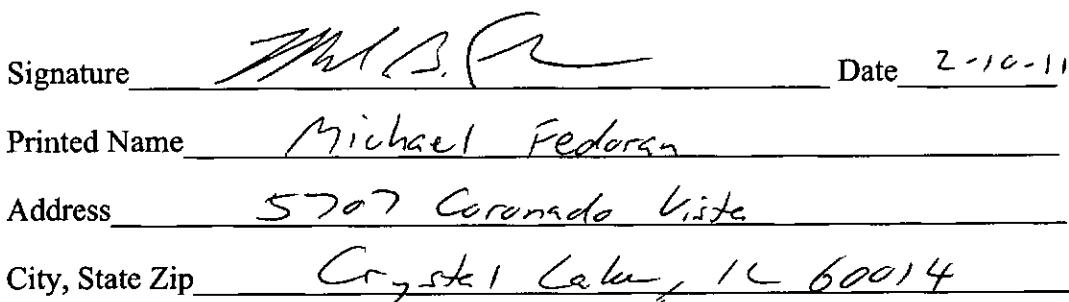 Signature Date 2-10-11
Printed Name Michael Fedoran
Address 5707 Coronado Vista
City, State Zip Crystal Lake, IL 60014